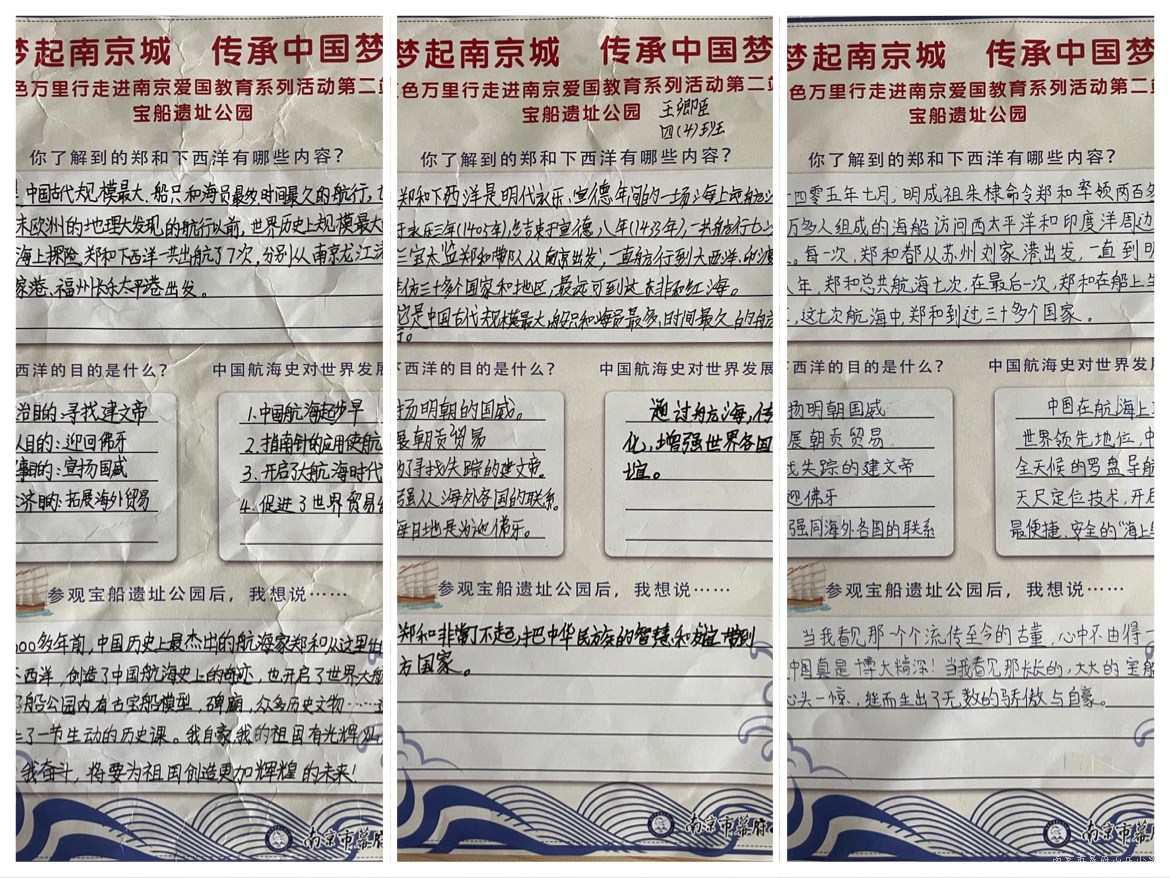 梦起南京城 传承中国梦
色万里行走进南京爱国教育系列活动第二站
宝船遗址公园
你了解到的郑和下西洋有哪些内容?
中国古代规模最大、船只和海员最多、时间最久的航行,
欧洲的地理大发现的航行以前,世界历史上规模最大
海上探险。郑和下西洋一共出航了7次,分别从南京龙江
家港、福州长乐太平港出发。
西洋的目的是什么?
治目的:寻找建文帝
目的:迎回佛牙
目的:宣扬国威
济目的:拓展海外贸易
中国航海史对世界发展
1.中国航海起步早
2.指南针的应用使航
3.开启了大航海时代
4.促进了世界贸易
参观宝船遗址公园后,我想说……
00多年前,中国历史上最杰出的航海家郑和从这里
西洋,创造了中国航海史上的奇迹,也开启了世界大航
船公园内有古宝船模型,碑廊,众多历史文物……
了一节生动的历史课。我自豪,我的祖国有光辉
我奋斗,将要为祖国创造更加辉煌的未来!
南京市幕府
梦起南京城 传承中国梦
色万里行走进南京爱国教育系列活动第二站
宝船遗址公园
王卿臣
四(4)班
你了解到的郑和下西洋有哪些内容?
郑和下西洋是明代永乐、宣德年间的一场海上远航
于永乐三年(1405年),结束于宣德八年(1433年),一共航行七
三宝太监郑和带队从南京出发,一直航行到大西洋、印度
访三十多个国家和地区,最远可到达东非和红海。
这是中国古代规模最大、船只和海员最多、时间最久的航
行。
西洋的目的是什么?
扬明朝的国威。
展朝贡贸易
了寻找失踪的建文帝
强从海外各国的联系。
目地是为迎佛牙。
中国航海史对世界发展
通过航海,传
化,增强世界各国
谊。
参观宝船遗址公园后,我想说……
郑和非常了不起,把中华民族的智慧和友谊带到
方国家。
南京市幕府
梦起南京城 传承中国梦
色万里行走进南京爱国教育系列活动第二站
宝船遗址公园
你了解到的郑和下西洋有哪些内容?
一四零五年七月,明成祖朱棣命令郑和率领两百多
万多人组成的海船访问西太平洋和印度洋周边
。每一次,郑和都从苏州刘家港出发,一直到明
年,郑和总共航海七次,在最后一次,郑和在船上
,这七次航海中,郑和到过三十多个国家。
西洋的目的是什么?
扬明朝国威
展朝贡贸易
找失踪的建文帝
迎佛牙
强同海外各国的联系
中国航海史对世界发展
中国在航海上
世界领先地位,中
全天候的罗盘导航
天尺定位技术,开启
最便捷、安全的“海上
参观宝船遗址公园后,我想说……
当我看见那一个个流传至今的古董,心中不由得一
中国真是博大精深!当我看见那长长的,大大的宝船
心头一惊,继而生出了无数的骄傲与自豪。
南京市幕府